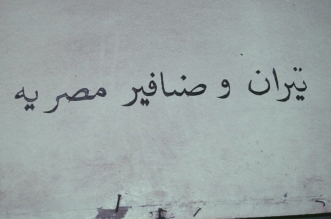 تيران و صنافير مصريه